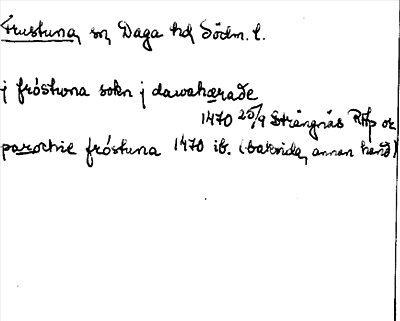 Frustuna sn Daga hd Södm. l.
j fróstwna sokn j dawahærade
1470 25/9 Strängnäs RAp or
parochie fróstuna 1470 ib. (baksida, annan hand)